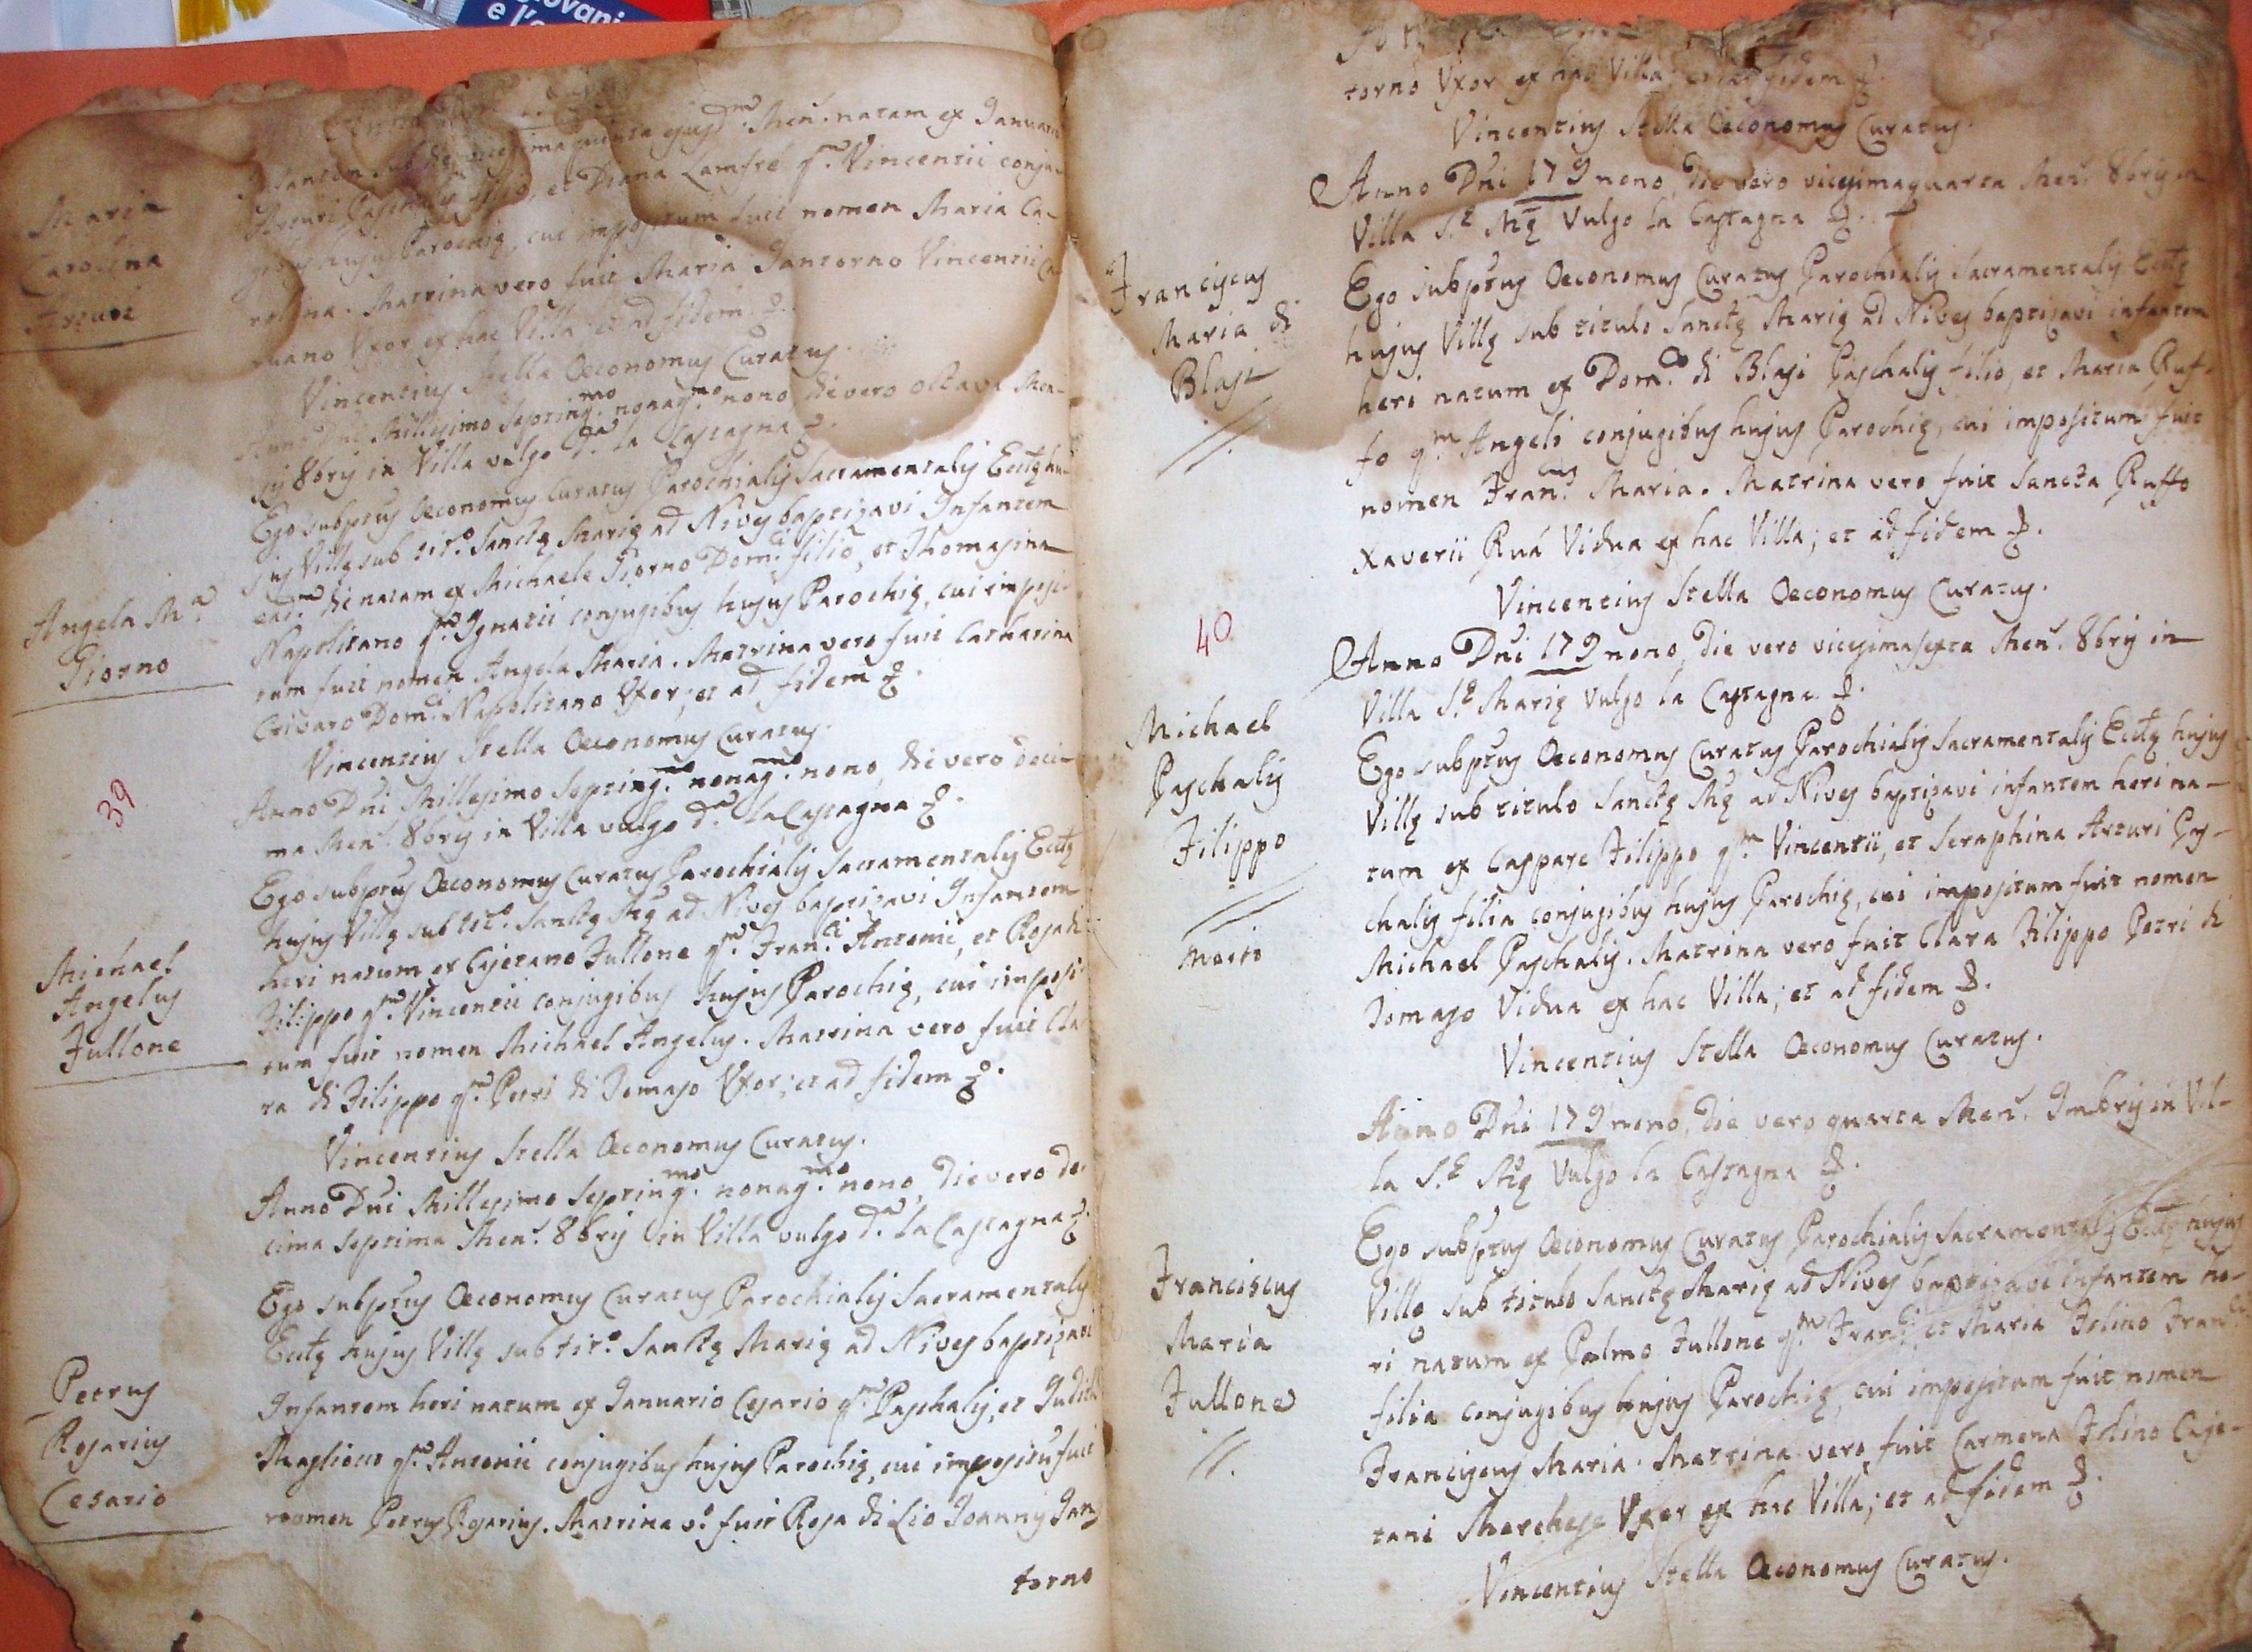 iovani
e l'
Maria
Carolina
Arturi
Infantem sub die vicesima quinta ejusd.m Men. natam ex Januario
Arturi Paschalis filio, et Diana Lamfré q.m Vincentii conju-
gibus hujus Parochię, cui impositum fuit nomen Maria Ca-
rolina. Matrina vero fuit Maria Jantorno Vincentii
Uxor ex hac Villa; et ad fidem
Vincentius Stella Oeconomus Curatus.
Anno Dni Millesimo septing.mo nonag.mo nono, die vero octava Men-
sis 8bris in Villa vulgo d.a la Castagna
Ego subptus Oeconomus Curatus Parochialis Sacramentalis Ecclę hu-
jus Villę sub tit.o Sanctę Marię ad Nives baptizavi Infantem
ead.m die natam ex Michaele Fiorno Dom.ci filio, et Thomasina
Napolitano q.m Ignatii conjugibus hujus Parochię, cui imposi-
tum fuit nomen Angela Maria. Matrina vero fuit Catharina
Crivaro Dom.ci Napolitano Uxor; et ad fidem
Vincentius Stella Oeconomus Curatus.
Angela M.a
Fiorno
39
Anno Dni Millesimo septing.mo nonag.mo nono, die vero deci-
ma Men. 8bris in Villa vulgo d.a la Castagna
Ego subptus Oeconomus Curatus Parochialis Sacramentalis Ecclę
hujus Villę sub tit.o Sanctę Mę ad Nives baptizavi Infantem
heri natum ex Cajetano Fullone q.m Fran.ci Antonii, et Rosa di
Filippo q.m Vincentii conjugibus hujus Parochię, cui imposi-
tum fuit nomen Michael Angelus. Matrina vero fuit Cla-
ra di Filippo q.m Petri di Tomaso Uxor; et ad fidem
Vincentius Stella Oeconomus Curatus.
Michael
Angelus
Fullone
Anno Dni Millesimo septing.mo nonag.mo nono, die vero de-
cima septima Men. 8bris in Villa vulgo d.a la Castagna
Ego subptus Oeconomus Curatus Parochialis Sacramentalis
Ecclę hujus Villę sub tit.o Sanctę Marię ad Nives baptizavi
Infantem heri natum ex Januario Cesario q.m Paschalis, et Judith
Maglioco q.m Antonii conjugibus hujus Parochię, cui impositu fuit
nomen Petrus Rosarius. Matrina v.o fuit Rosa di Lio Joannis Jan-
torno
Petrus
Rosarius
Cesario
torno Uxor ex hac Villa; et ad fidem
Vincentius Stella Oeconomus Curatus.
Anno Dni 179 nono, die vero vicesimaquarta Men. 8bris in
Villa S.ę Mę Vulgo la Castagna
Ego subptus Oeconomus Curatus Parochialis Sacramentalis Ecclę
hujus Villę sub titulo Sanctę Marię ad Nives baptizavi infantem
heri natum ex Dom.co di Blasi Paschalis filio, et Maria Ruf-
fo q.m Angeli conjugibus hujus Parochię, cui impositum fuit
nomen Fran.cus Maria. Matrina vero fuit Sancta Ruffo
Xaverii Ruà Vidua ex hac Villa; et ad fidem
Vincentius Stella Oeconomus Curatus.
Franciscus
Maria di
Blasi
40
Anno Dni 179 nono, die vero vicesimasexta Men. 8bris in
Villa S.ę Marię Vulgo la Castagna
Ego subptus Oeconomus Curatus Parochialis Sacramentalis Ecclę hujus
Villę sub titulo Sanctę Mę ad Nives baptizavi infantem heri na-
tum ex Caspare Filippo q.m Vincentii, et Seraphina Arturi Pas-
chalis filia conjugibus hujus Parochię, cui impositum fuit nomen
Michael Paschalis. Matrina vero fuit Clara Filippo Petri di
Tomaso Vidua ex hac Villa; et ad fidem
Vincentius Stella Oeconomus Curatus.
Michael
Paschalis
Filippo
morto
Anno Dni 179 nono, die vero quarta Men. 9mbris in Vil-
la S.ę Mę Vulgo la Castagna
Ego subptus Oeconomus Curatus Parochialis Sacramentalis Ecclę hujus
Villę sub titulo Sanctę Marię ad Nives baptizavi infantem he-
ri natum ex Palmo Fullone q.m Fran.ci, et Maria Folino Fran.ci
filia conjugibus hujus Parochię, cui impositum fuit nomen
Franciscus Maria. Matrina vero fuit Carmena Folino Caje-
tani Marchese Uxor ex hac Villa; et ad fidem
Vincentius Stella Oeconomus Curatus.
Franciscus
Maria
Fullone